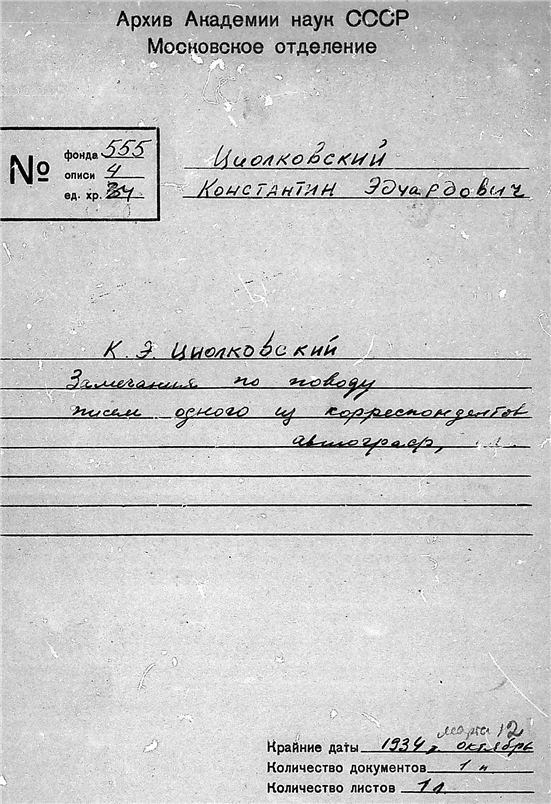 Архив Академии наук СССР
Московское отделение
№
фонда 555
описи 4
ед. хр. 34
Циолковский
Константин Эдуардович
К. Э. Циолковский
Замечания по поводу
писем одного из корреспондентов
автограф,
марта 12
Крайние даты 1934 г. октябрь
Количество документов 1
Количество листов 1 л.